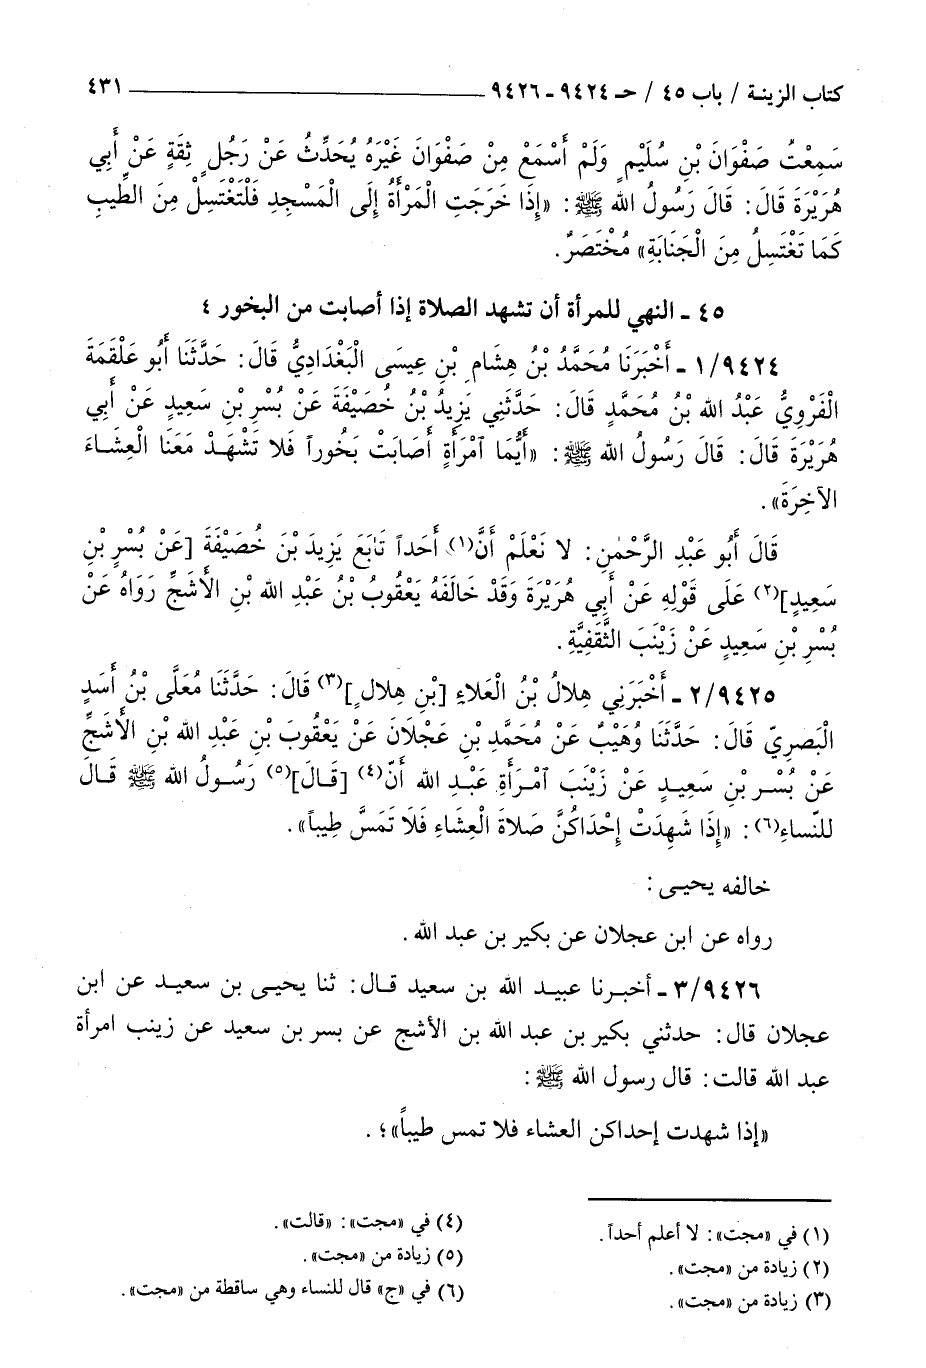 كتاب الزينة / باب ٤٥ / حـ ٩٤٢٤ ـ ٩٤٢٦ ٤٣١
سَمِعْتُ صَفْوَانَ بْنِ سُلَيْمٍ وَلَمْ أَسْمَعْ مِنْ صَفْوَانَ غَيْرَهُ يُحَدِّثُ عَنْ رَجُلٍ ثِقَةٍ عَنْ أَبِي
هُرَيْرَةَ قَالَ: قَالَ رَسُولُ الله ﷺ: «إِذَا خَرَجَتِ الْمَرْأَةُ إِلَى الْمَسْجِدِ فَلْتَغْتَسِلْ مِنَ الطِّيبِ
كَمَا تَغْتَسِلُ مِنَ الْجَنَابَةِ» مُخْتَصَرٌ.
٤٥ ـ النهي للمرأة أن تشهد الصلاة إذا أصابت من البخور ٤
١/٩٤٢٤ ـ أَخْبَرَنَا مُحَمَّدُ بْنُ هِشَامِ بْنِ عِيسَى الْبَغْدَادِيُّ قَالَ: حَدَّثَنَا أَبُو عَلْقَمَةَ
الْفَرْوِيُّ عَبْدُ الله بْنُ مُحَمَّدٍ قَالَ: حَدَّثَنِي يَزِيدُ بْنُ خُصَيْفَةَ عَنْ بُسْرِ بْنِ سَعِيدٍ عَنْ أَبِي
هُرَيْرَةَ قَالَ: قَالَ رَسُولُ الله ﷺ: «أَيُّمَا ٱمْرَأَةٍ أَصَابَتْ بَخُوراً فَلَا تَشْهَدْ مَعَنَا الْعِشَاءَ
الآخِرَةَ».
قَالَ أَبُو عَبْدِ الرَّحْمٰنِ: لا نَعْلَمْ أَنَّ(١) أَحَداً تَابَعَ يَزِيدَ بْنَ خُصَيْفَةَ [عَنْ بُسْرِ بْنِ
سَعِيدٍ](٢) عَلَى قَوْلِهِ عَنْ أَبِي هُرَيْرَةَ وَقَدْ خَالَفَهُ يَعْقُوبُ بْنُ عَبْدِ الله بْنِ الأَشَجِّ رَوَاهُ عَنْ
بُسْرِ بْنِ سَعِيدٍ عَنْ زَيْنَبَ الثَّقَفِيَّةِ.
٢/٩٤٢٥ ـ أَخْبَرَنِي هِلالُ بْنُ الْعَلاءِ [بْنِ هِلالٍ](٣) قَالَ: حَدَّثَنَا مُعَلَّى بْنُ أَسَدٍ
الْبَصرِيّ قَالَ: حَدَّثَنَا وُهَيْبٌ عَنْ مُحَمَّدِ بْنِ عَجْلَانَ عَنْ يَعْقُوبَ بْنِ عَبْدِ الله بْنِ الأَشَجِّ
عَنْ بُسْرِ بْنِ سَعِيدٍ عَنْ زَيْنَبَ ٱمْرَأَةِ عَبْدِ الله أَنّ(٤) [قَالَ](٥) رَسُولُ الله ﷺ قَالَ
للنّساءِ(٦): «إِذَا شَهِدَتْ إِحْدَاكُنَّ صَلاةَ الْعِشَاءِ فَلَا تَمَسَّ طِيباً».
خالفه يحيى:
رواه عن ابن عجلان عن بكير بن عبد الله.
٣/٩٤٢٦ ـ أخبرنا عبيد الله بن سعيد قال: ثنا يحيى بن سعيد عن ابن
عجلان قال: حدثني بكير بن عبد الله بن الأشج عن بسر بن سعيد عن زينب امرأة
عبد الله قالت: قال رسول الله ﷺ:
«إذا شهدت إحداكن العشاء فلا تمس طيباً»؛.
(١) في «مجت»: لا أعلم أحداً.
(٢) زيادة من «مجت».
(٣) زيادة من «مجت».
(٤) في «مجت»: «قالت».
(٥) زيادة من «مجت».
(٦) في «ج» قال للنساء وهي ساقطة من «مجت».